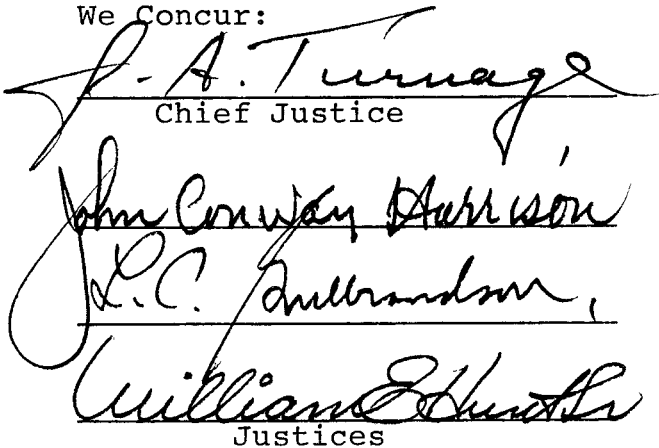 We Concur:
J. A. Turnage
Chief Justice
John Conway Harrison
L. C. Gulbrandson,
William E Hunt Sr
Justices